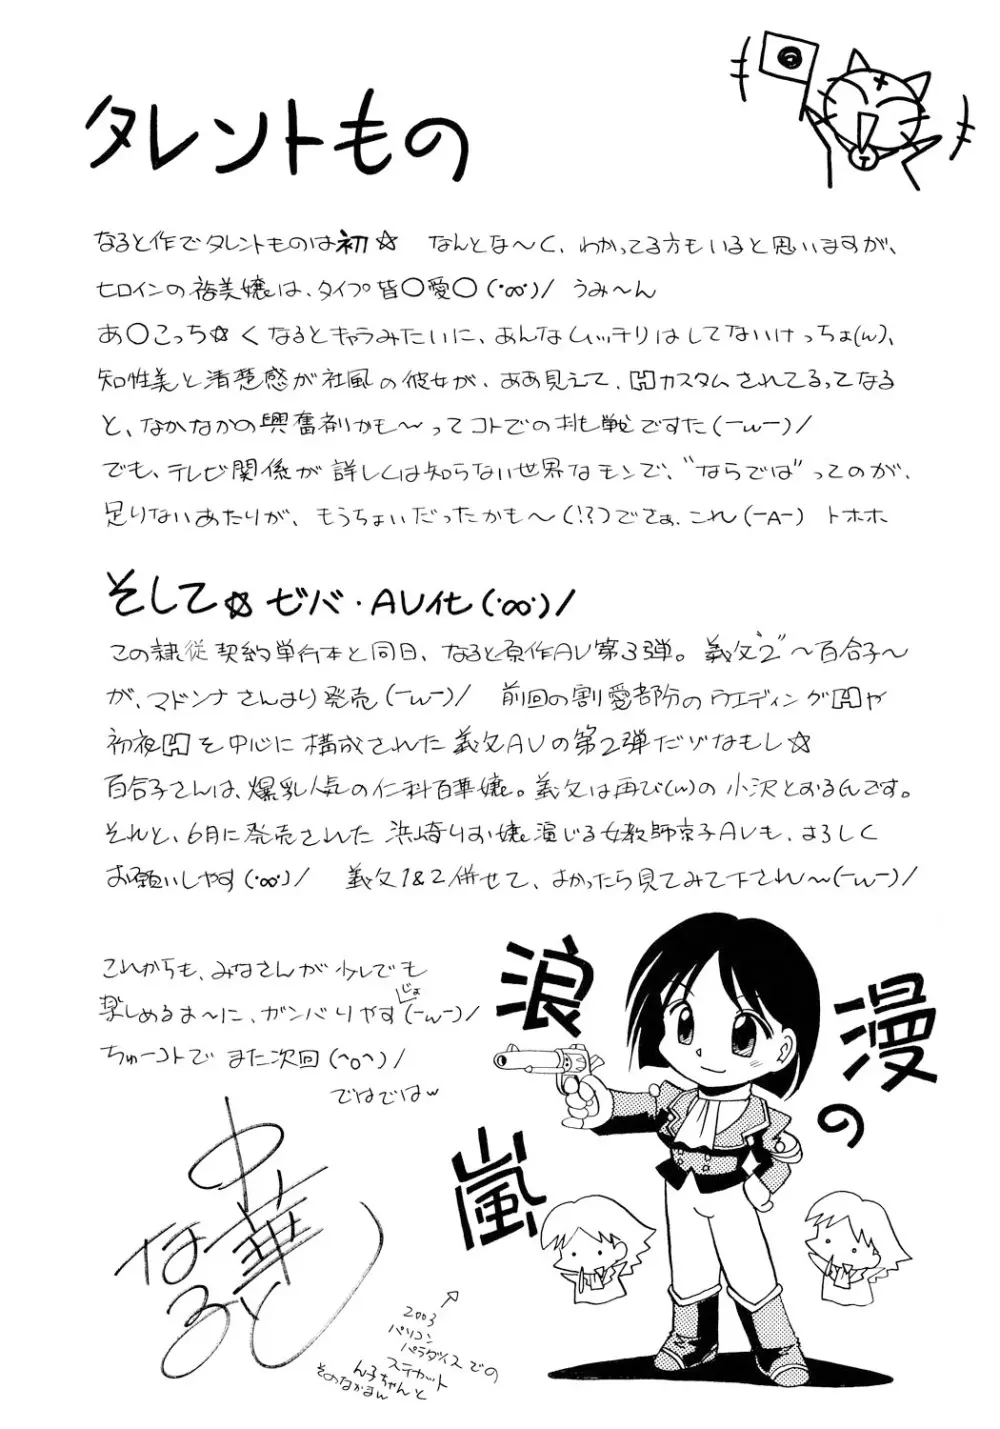 タレントもの
なると作でタレントものは初☆ なんとな〜く、わかってる方もいると思いますが、
ヒロインの裕美嬢は、タイプ皆〇愛〇(・∞・)/ うみ〜ん
あ〇こっち☆くなるとキャラみたいに、あんなムッチリはしてないけっちょ(w)、
知性美と清楚感が社風の彼女が、ああ見えて、Hカスタムされてるってなる
と、なかなかの興奮剤かも〜ってコトでの挑戦ですた(ーwー)/
でも、テレビ関係が詳しくは知らない世界なモンで、"ならでは"ってのが、
足りないあたりが、もうちょいだったかも〜(!?)でさぁ、これ(ーAー) トホホ
そして☆ ゼバ・AV化(・∞・)/
この隷従契約単行本と同日、なると原作AV第3弾。義父"2"〜百合子〜
が、マドンナさんより発売(ーwー)/ 前回の割愛部分のウエディングHや
初夜Hを中心に構成された義父AVの第2弾だゾなもし☆
百合子さんは、爆乳人気の仁科百華嬢。義父は再び(w)の小沢とおるんです。
それと、6月に発売された浜崎りお嬢演じる女教師京子AVも、よろしく
お願いしやす(・∞・)/ 義父1&2併せて、よかったら見てみて下され〜(ーwー)/
これからも、みなさんが少しでも
楽しめるよ〜に、ガンバりやす(ーwー)/
じょ
ちゅーコトで また次回(^o^)/
ではではw
中華
なると
浪
漫
の
嵐
2003
パソコン
パラダイスでの
ステカット
ん子ちゃんと
そのなかまん
T